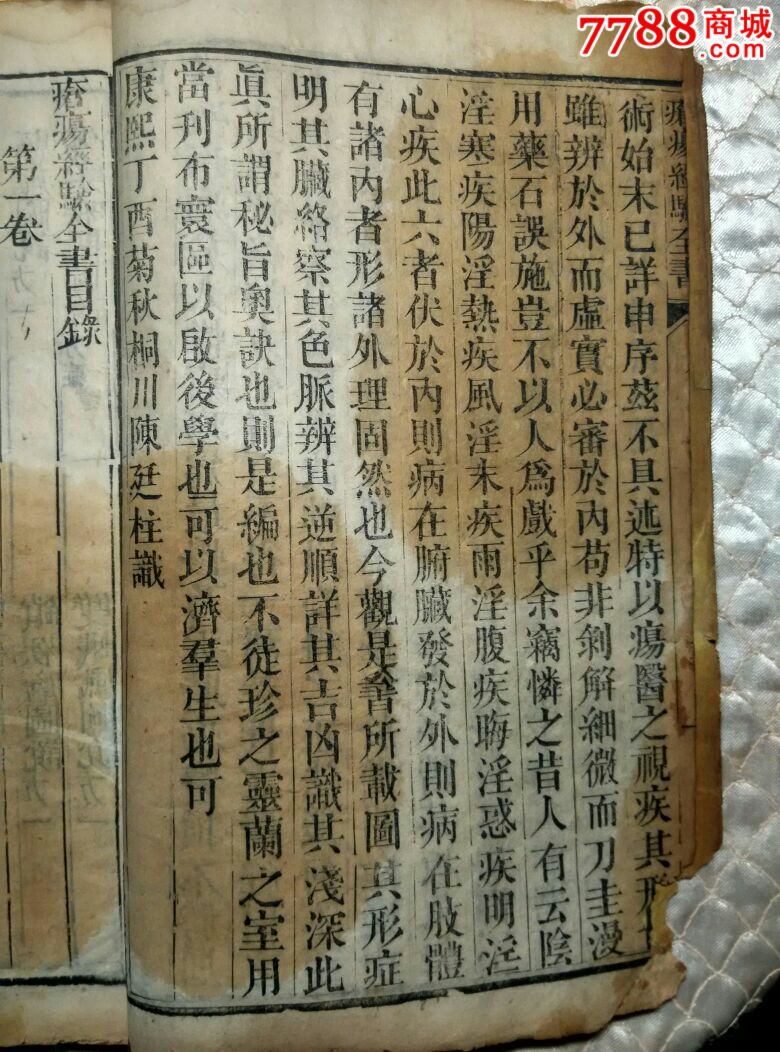 7788商城
.com
瘡瘍經驗全書
術始末已詳申序茲不具述特以瘍醫之視疾其形
雖辨於外而虛實必審於內苟非剝解細微而刀圭漫
用藥石誤施豈不以人爲戲乎余竊憐之昔人有云陰
淫寒疾陽淫熱疾風淫末疾雨淫腹疾晦淫惑疾明淫
心疾此六者伏於內則病在腑臟發於外則病在肢體
有諸內者形諸外理固然也今觀是書所載圖其形症
明其臟絡察其色脈辨其逆順詳其吉凶識其淺深此
眞所謂秘旨奧訣也則是編也不徒珍之靈蘭之室用
當刊布寰區以啟後學也可以濟羣生也可
康熙丁酉菊秋桐川陳廷柱識
瘡瘍經驗全書目錄
第一卷